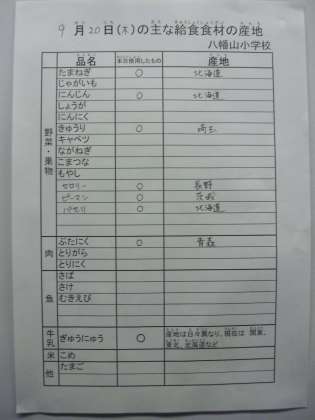 9月20日(木)の主な給食食材の産地
八幡山小学校
品名 本日使用したもの 産地
野菜・果物
たまねぎ ○ 北海道
じゃがいも
にんじん ○ 北海道
しょうが
にんにく
きゅうり ○ 埼玉
キャベツ
ながねぎ
こまつな
もやし
セロリー ○ 長野
ピーマン ○ 茨城
パセリ ○ 北海道
肉
ぶたにく ○ 青森
とりがら
とりにく
魚
さば
さけ
むきえび
牛乳 ぎゅうにゅう ○ 産地は日々異なり、現在は 関東、
東北、北海道など
米 こめ
他 たまご